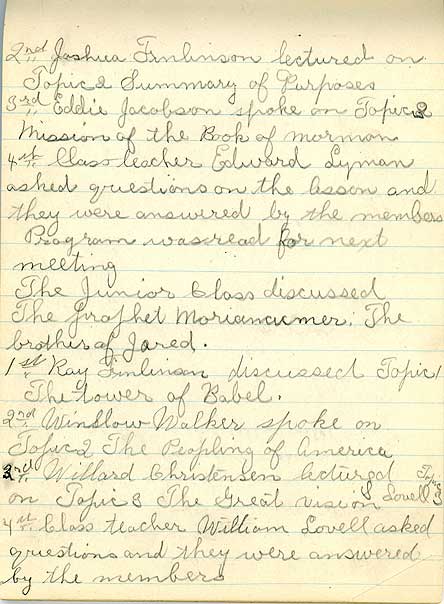 2nd Joshua Finlinson lectured on
Topic 2 Summary of Purposes
3rd Eddie Jacobson spoke on Topic 3
Mission of the Book of mormon
4st Class teacher Edward Lyman
asked questions on the lesson and
they were answered by the members
Program was read for next
meeting
The Junior Class discussed
The Prophet Moriancumer. The
brother of Jared.
1st Ray Finlinson discussed Topic 1
The tower of Babel.
2nd Winslow Walker spoke on
Topic 2 The Peopling of America
3rd Willard Christensen lectured
on Topic 3 The Great vision S Lovell 3
4st Class teacher William Lovell asked
questions and they were answered
by the members